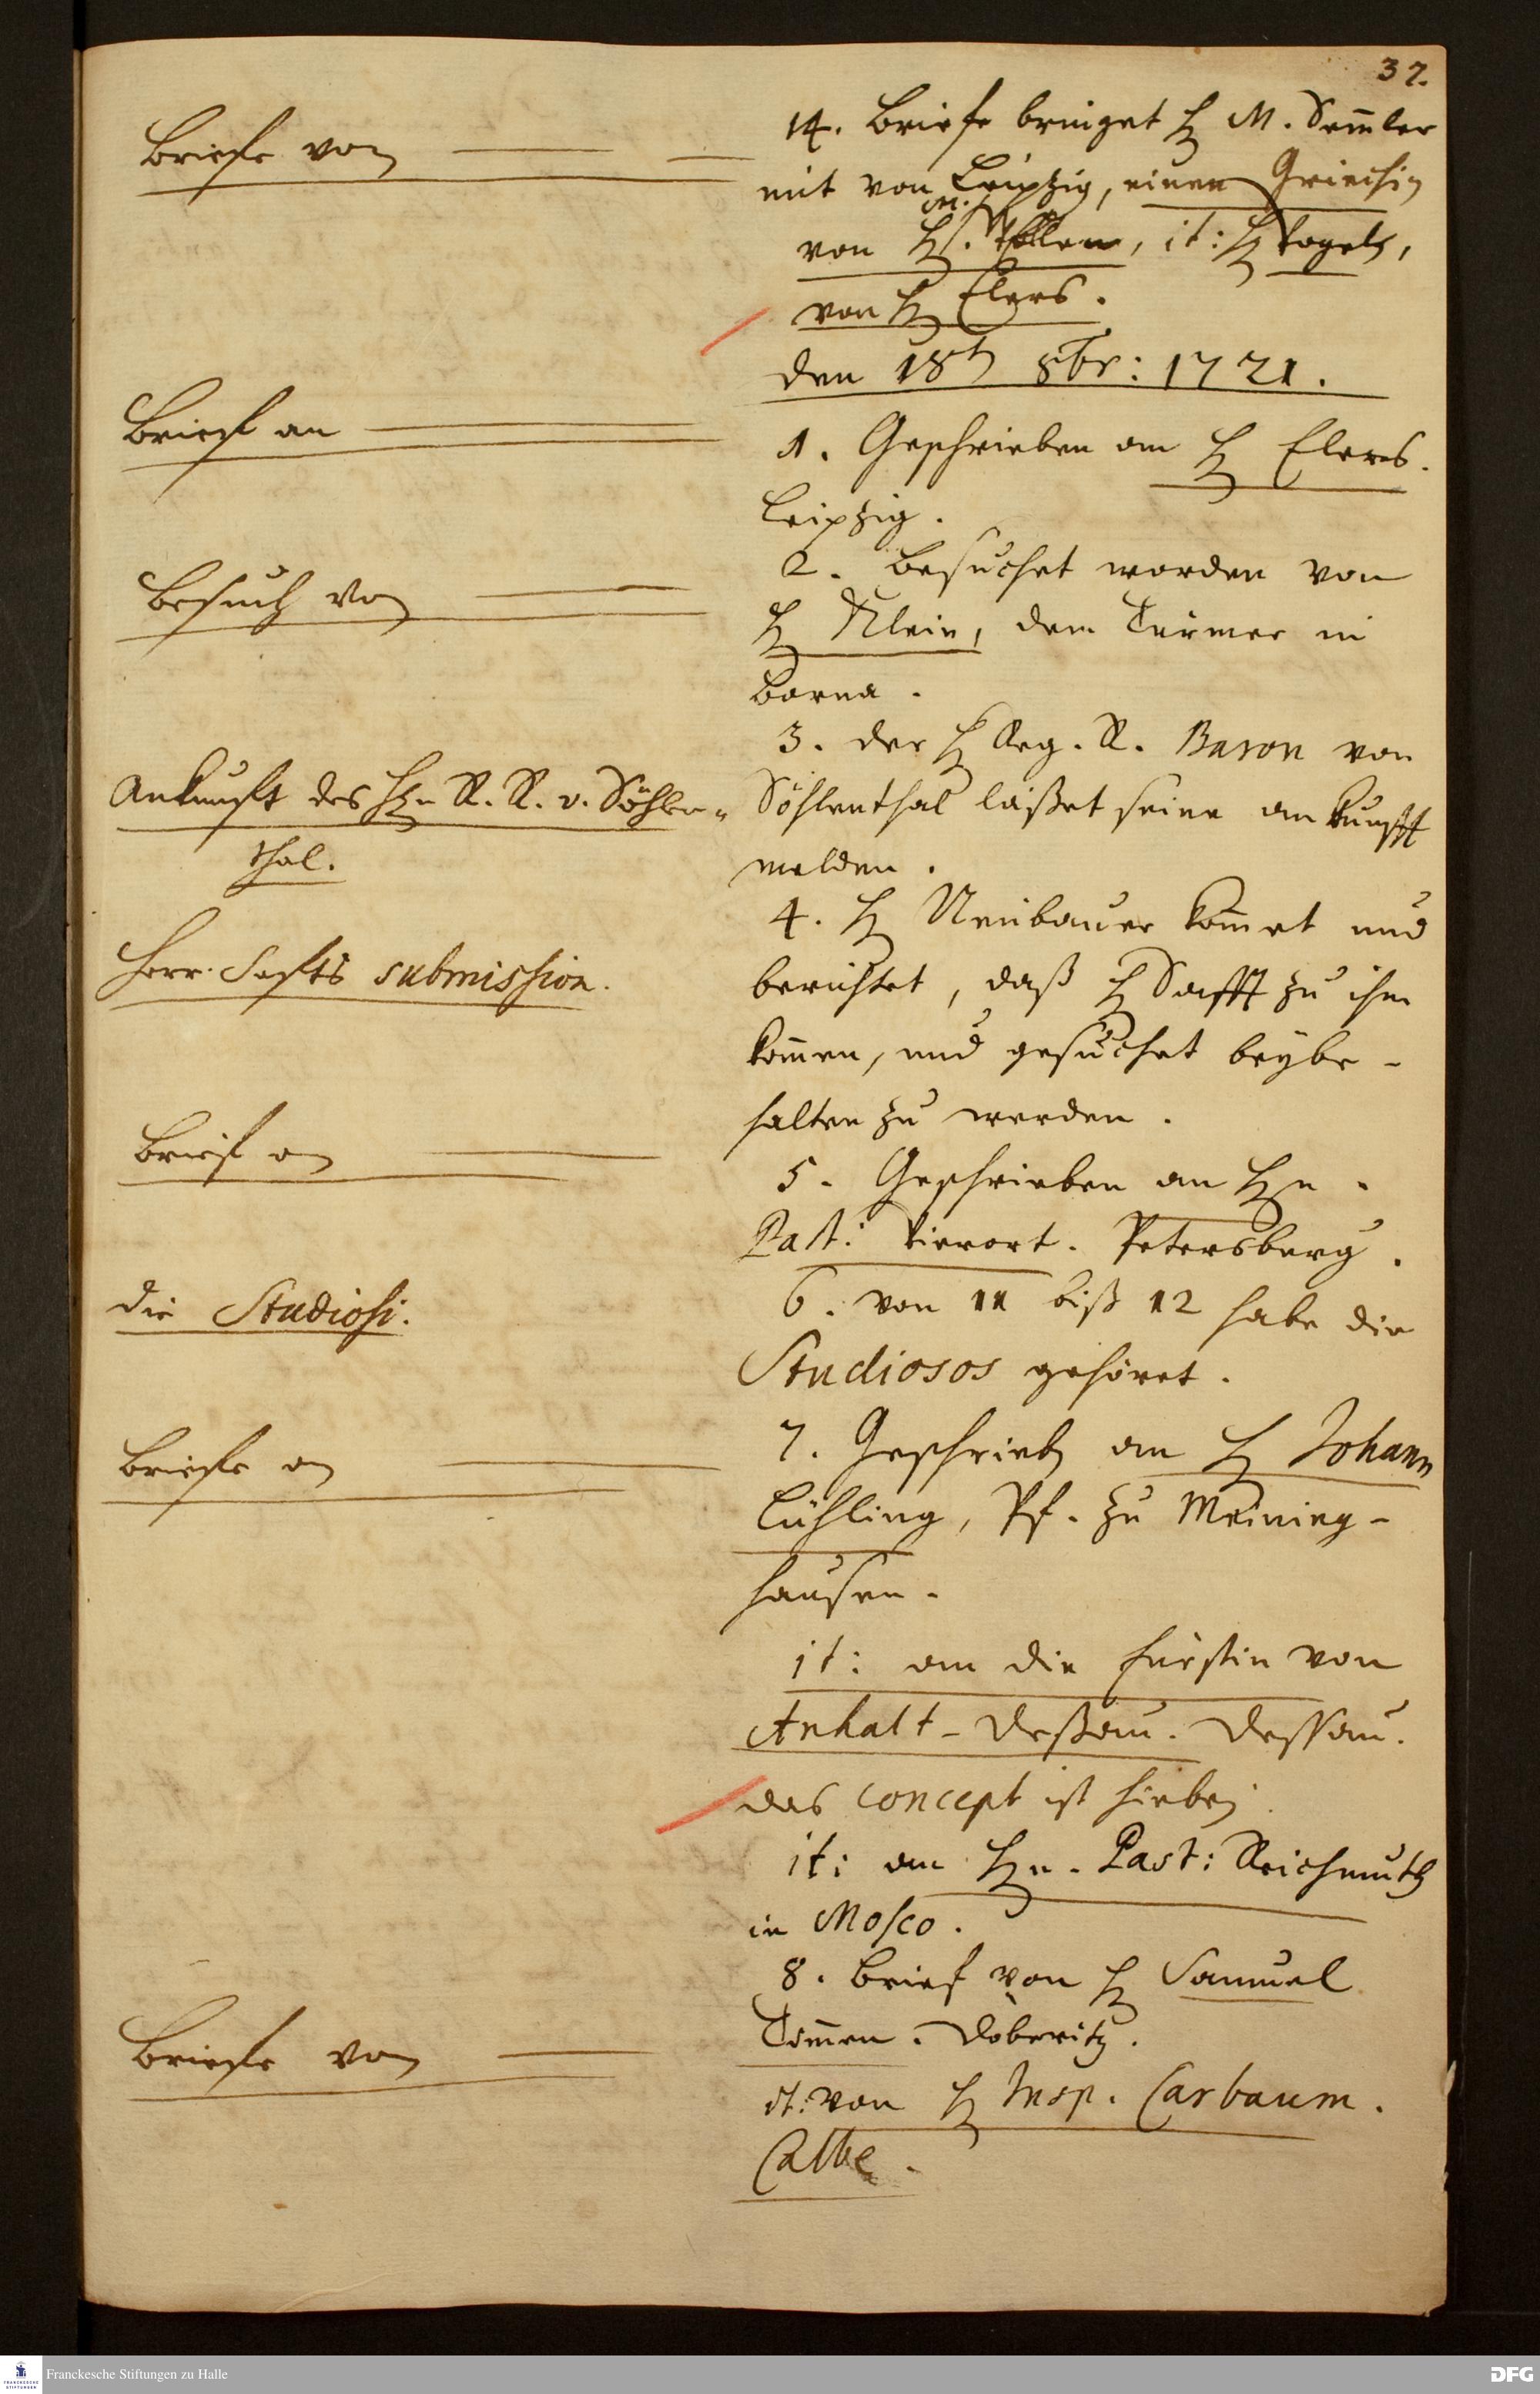 37.
Briefe von
14. Briefe bringet H. M. Semler
mit von Leipzig, einen Griechisch
von H. M. , it: H. Vogels,
von H. Elers.
den 18ten 8br: 1721.
Brief an
1. Geschrieben an H. Elers.
Leipzig.
Besuch von
2. Besuchet worden von
H. Klein, dem Türmer in
Borna.
Ankunfft des Hn. R. R. v. Söhlen-
thal.
3. der H. Reg. R. Baron von
Söhlenthal läßet seine ankunfft
melden.
Herr Saffts submission.
4. H. Neubauer kommet und
berichtet, daß H. Safft zu ihm
kommen, und gesuchet beybe-
halten zu werden.
Brief an
5. Geschrieben an Hn.
Past: Vierort. Petersberg.
die Studiosi.
6. von 11 biß 12 habe die
Studiosos gehöret.
Briefe an
7. Geschrieben an H. Johann
Lühling, Pf. zu Meining-
hausen.
it: an die Fürstin von
Anhalt-Deßau. Dessau.
das concept ist hiebey.
it: an Hn. Past: Reichmuth
in Mosco.
Briefe von
8. Brief von H. Samuel
Tommen. Döberitz.
it: von H. Insp. Carbaum.
Calbe.
Franckesche Stiftungen zu Halle
DFG